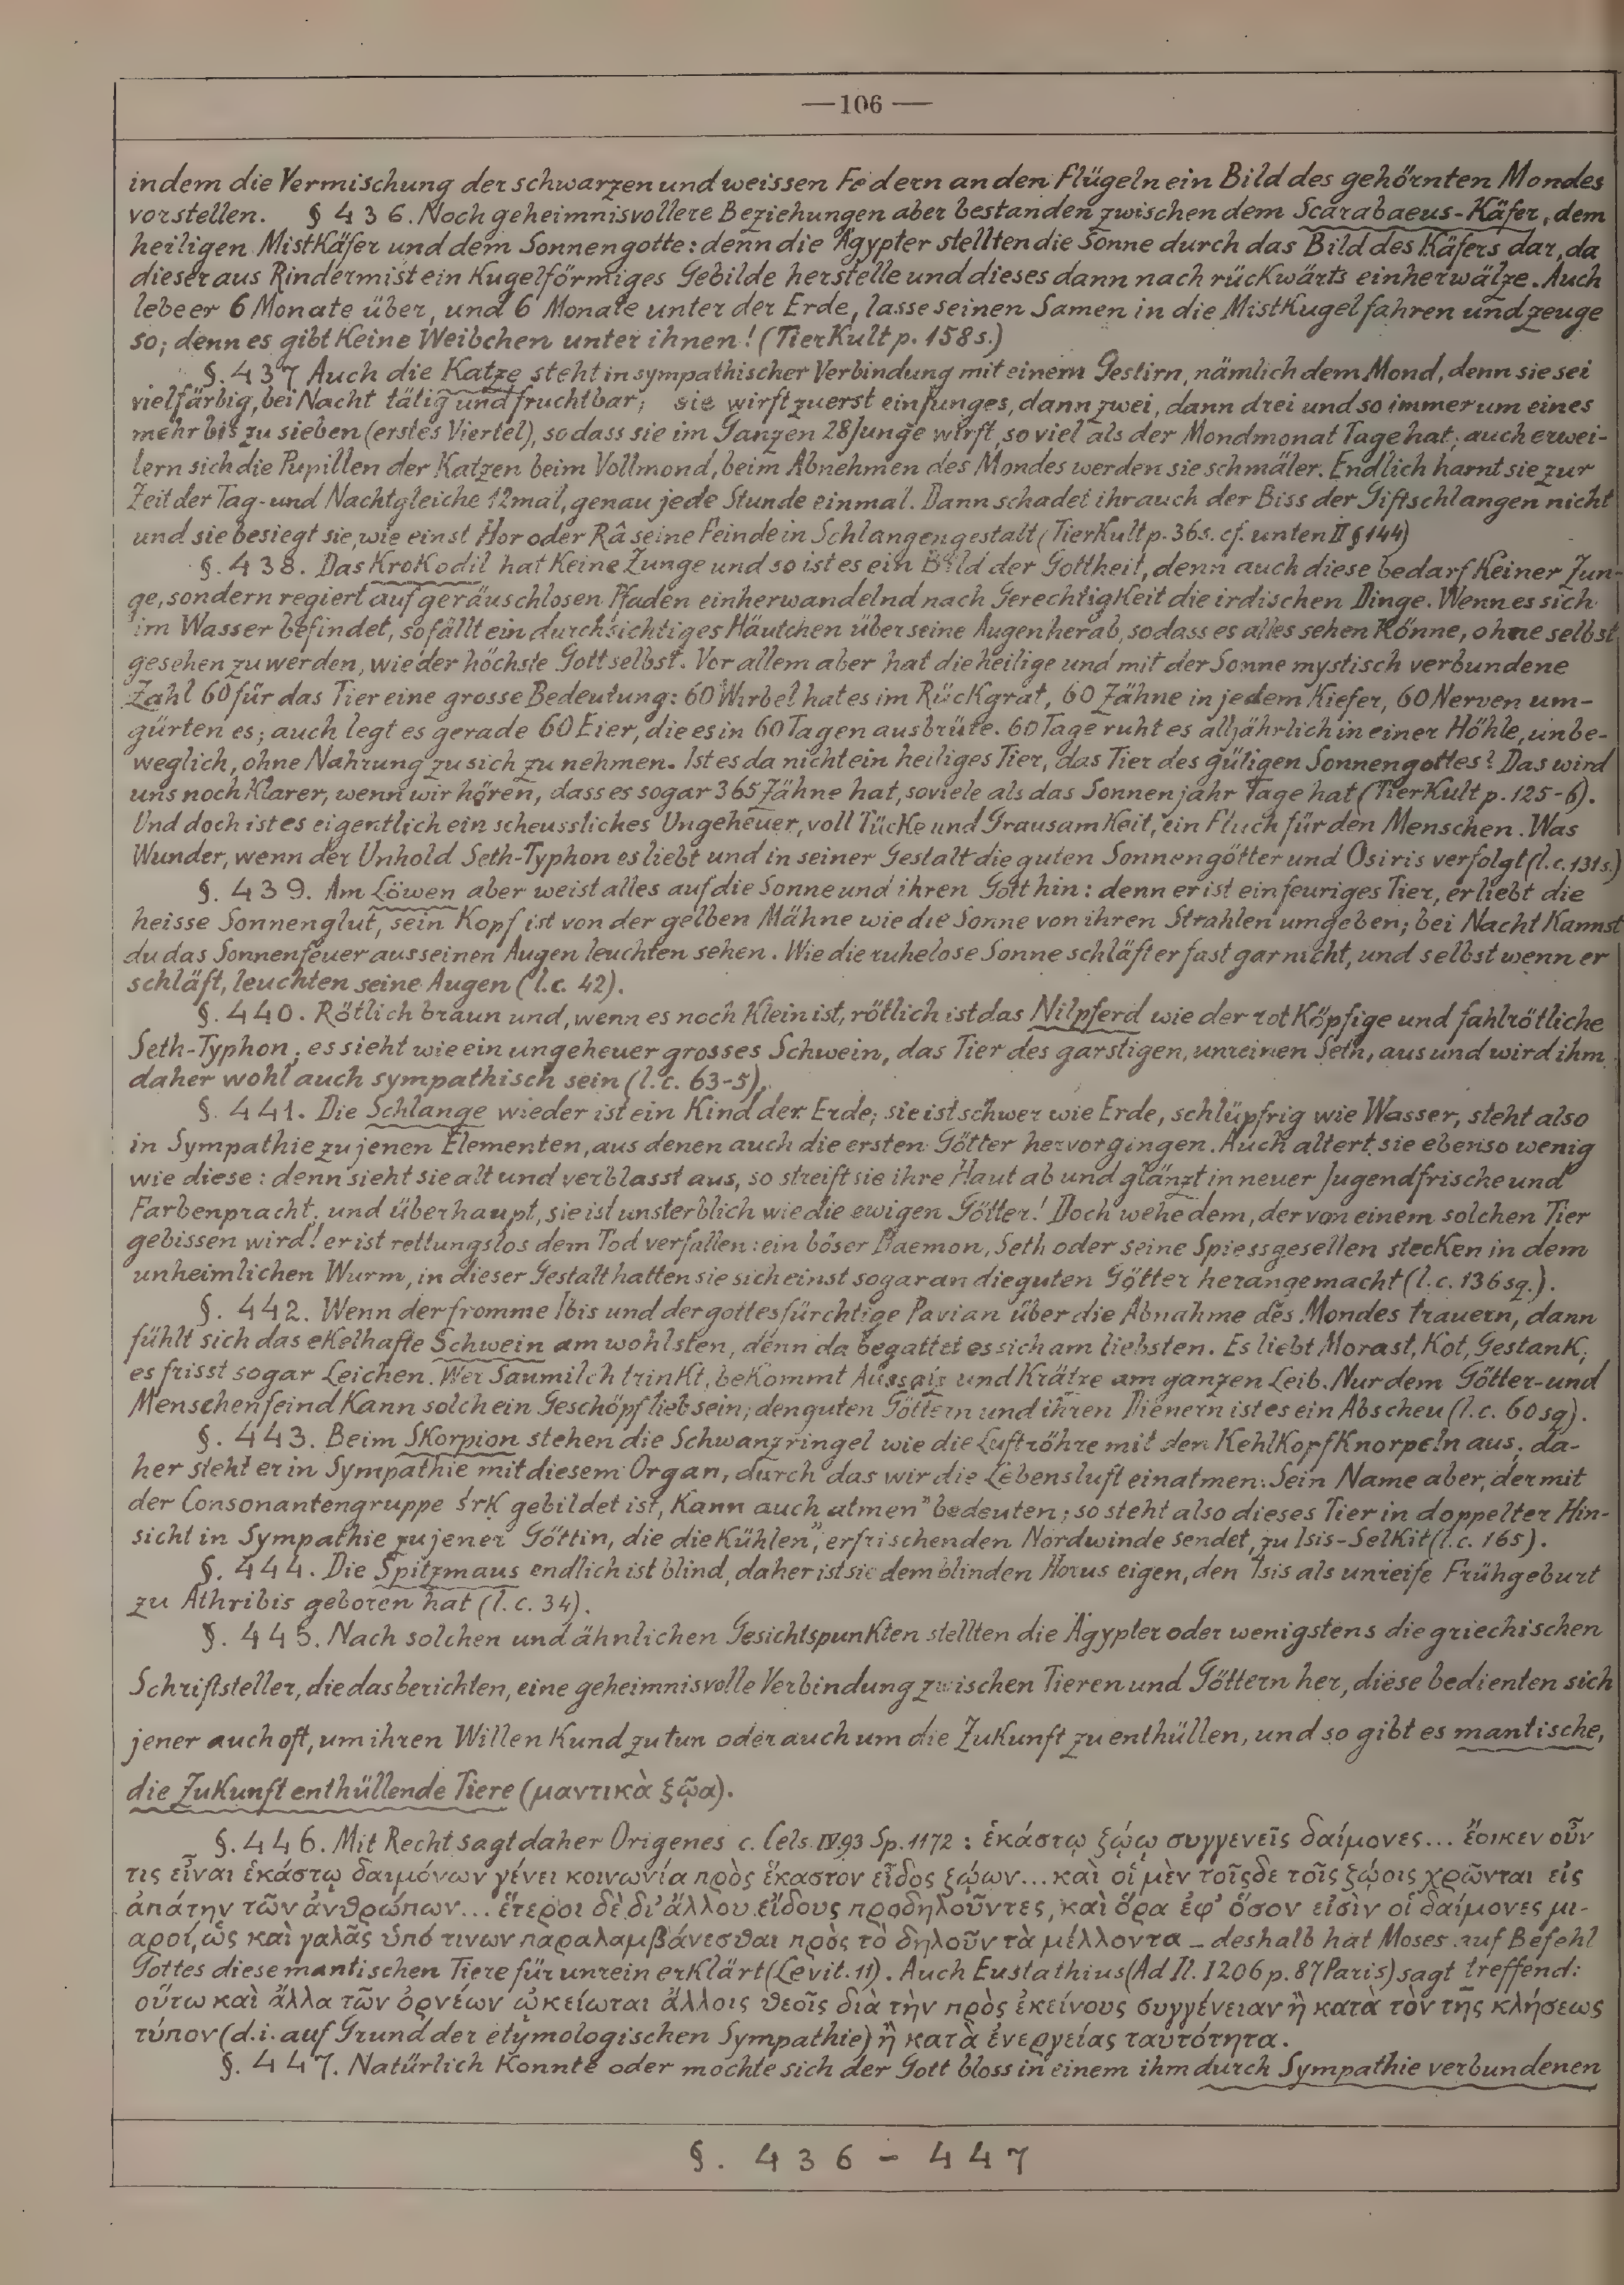 —106—
indem die Vermischung der schwarzen und weissen Federn an den Flügeln ein Bild des gehörnten Mondes
vorstellen. § 436. Noch geheimnisvollere Beziehungen aber bestanden zwischen dem Scarabaeus-Käfer, dem
heiligen Mistkäfer und dem Sonnengotte: denn die Ägypter stellten die Sonne durch das Bild des Käfers dar, da
dieser aus Rindermist ein kugelförmiges Gebilde herstelle und dieses dann nach rückwärts einherwälze. Auch
lebe er 6 Monate über, und 6 Monate unter der Erde, lasse seinen Samen in die Mistkugel fahren und zeuge
so; denn es gibt keine Weibchen unter ihnen! (Tierkult p. 158 s.)
§. 437 Auch die Katze steht in sympathischer Verbindung mit einem Gestirn, nämlich dem Mond, denn sie sei
vielfärbig, bei Nacht tätig und fruchtbar; sie wirft zuerst ein Junges, dann zwei, dann drei und so immer um eines
mehr bis zu sieben (erstes Viertel), sodass sie im Ganzen 28 Junge wirft, so viel als der Mondmonat Tage hat; auch erwei-
tern sich die Pupillen der Katzen beim Vollmond, beim Abnehmen des Mondes werden sie schmäler. Endlich harnt sie zur
Zeit der Tag- und Nachtgleiche 12mal, genau jede Stunde einmal. Dann schadet ihr auch der Biss der Giftschlangen nicht
und sie besiegt sie, wie einst Hor oder Râ seine Feinde in Schlangengestalt (Tierkult p. 36 s. cf. unten II § 144)
§. 438. Das Krokodil hat keine Zunge und so ist es ein Bild der Gottheit, denn auch diese bedarf keiner Zun-
ge, sondern regiert auf geräuschlosen Pfaden einherwandelnd nach Gerechtigkeit die irdischen Dinge. Wenn es sich
im Wasser befindet, so fällt ein durchsichtiges Häutchen über seine Augen herab, sodass es alles sehen könne, ohne selbst
gesehen zu werden, wie der höchste Gott selbst. Vor allem aber hat die heilige und mit der Sonne mystisch verbundene
Zahl 60 für das Tier eine grosse Bedeutung: 60 Wirbel hat es im Rückgrat, 60 Zähne in jedem Kiefer, 60 Nerven um-
gürten es; auch legt es gerade 60 Eier, die es in 60 Tagen ausbrüte. 60 Tage ruht es alljährlich in einer Höhle, unbe-
weglich, ohne Nahrung zu sich zu nehmen. Ist es da nicht ein heiliges Tier, das Tier des gütigen Sonnengottes? Das wird
uns noch klarer, wenn wir hören, dass es sogar 365 Zähne hat, soviele als das Sonnenjahr Tage hat (Tierkult p. 125-6).
Und doch ist es eigentlich ein scheussliches Ungeheuer, voll Tücke und Grausamkeit, ein Fluch für den Menschen. Was
Wunder, wenn der Unhold Seth-Typhon es liebt und in seiner Gestalt die guten Sonnengötter und Osiris verfolgt (l.c. 131 s.)
§. 439. Am Löwen aber weist alles auf die Sonne und ihren Gott hin: denn er ist ein feuriges Tier, er liebt die
heisse Sonnenglut, sein Kopf ist von der gelben Mähne wie die Sonne von ihren Strahlen umgeben; bei Nacht kannst
du das Sonnenfeuer aus seinen Augen leuchten sehen. Wie die ruhelose Sonne schläft er fast gar nicht, und selbst wenn er
schläft, leuchten seine Augen (l.c. 42).
§. 440. Rötlich braun und, wenn es noch klein ist, rötlich ist das Nilpferd wie der rotköpfige und fahlrötliche
Seth-Typhon; es sieht wie ein ungeheuer grosses Schwein, das Tier des garstigen, unreinen Seth, aus und wird ihm
daher wohl auch sympathisch sein (l.c. 63-5).
§. 441. Die Schlange wieder ist ein Kind der Erde; sie ist schwer wie Erde, schlüpfrig wie Wasser, steht also
in Sympathie zu jenen Elementen, aus denen auch die ersten Götter hervorgingen. Auch altert sie ebenso wenig
wie diese: denn sieht sie alt und verblasst aus, so streift sie ihre Haut ab und glänzt in neuer Jugendfrische und
Farbenpracht; und überhaupt, sie ist unsterblich wie die ewigen Götter! Doch wehe dem, der von einem solchen Tier
gebissen wird! er ist rettungslos dem Tod verfallen: ein böser Daemon, Seth oder seine Spiessgesellen stecken in dem
unheimlichen Wurm, in dieser Gestalt hatten sie sich einst sogar an die guten Götter herangemacht (l.c. 136 sq.).
§. 442. Wenn der fromme Ibis und der gottesfürchtige Pavian über die Abnahme des Mondes trauern, dann
fühlt sich das ekelhafte Schwein am wohlsten, denn da begattet es sich am liebsten. Es liebt Morast, Kot, Gestank;
es frisst sogar Leichen. Wer Saumilch trinkt, bekommt Aussatz und Krätze am ganzen Leib. Nur dem Götter- und
Menschenfeind kann solch ein Geschöpf lieb sein; den guten Göttern und ihren Dienern ist es ein Abscheu (l.c. 60 sq).
§. 443. Beim Skorpion stehen die Schwanzringel wie die Luftröhre mit den Kehlkopfknorpeln aus; da-
her steht er in Sympathie mit diesem Organ, durch das wir die Lebensluft einatmen. Sein Name aber, der mit
der Consonantengruppe śrk gebildet ist, kann auch „atmen" bedeuten; so steht also dieses Tier in doppelter Hin-
sicht in Sympathie zu jener Göttin, die die kühlen, erfrischenden Nordwinde sendet, zu Isis-Selkit (l.c. 165).
§. 444. Die Spitzmaus endlich ist blind, daher ist sie dem blinden Horus eigen, den Isis als unreife Frühgeburt
zu Athribis geboren hat (l.c. 34).
§. 445. Nach solchen und ähnlichen Gesichtspunkten stellten die Ägypter oder wenigstens die griechischen
Schriftsteller, die das berichten, eine geheimnisvolle Verbindung zwischen Tieren und Göttern her, diese bedienten sich
jener auch oft, um ihren Willen kund zu tun oder auch um die Zukunft zu enthüllen, und so gibt es mantische,
die Zukunft enthüllende Tiere (μαντικὰ ξῷα).
§. 446. Mit Recht sagt daher Origenes c. Cels. IV.93 Sp. 1172: ἑκάστῳ ξῴῳ συγγενεῖς δαίμονες... ἔοικεν οὖν
τις εἶναι ἑκάστῳ δαιμόνων γένει κοινωνία πρὸς ἕκαστον εἶδος ξῴων... καὶ οἱ μὲν τοῖςδε τοῖς ξῴοις χρῶνται εἰς
ἀπάτην τῶν ἀνθρώπων... ἕτεροι δὲ δι' ἄλλου εἴδους προδηλοῦντες, καὶ ὅρα ἐφ' ὅσον εἰσὶν οἱ δαίμονες μι-
αροί, ὡς καὶ γαλᾶς ὑπό τινων παραλαμβάνεσθαι πρὸς τὸ δηλοῦν τὰ μέλλοντα – deshalb hat Moses auf Befehl
Gottes diese mantischen Tiere für unrein erklärt (Levit. 11). Auch Eustathius (Ad Il. I 206 p. 87 Paris) sagt treffend:
οὕτω καὶ ἄλλα τῶν ὀρνέων ᾠκείωται ἄλλοις θεοῖς διὰ τὴν πρὸς ἐκείνους συγγένειαν ἢ κατὰ τὸν τῆς κλήσεως
τύπον (d.i. auf Grund der etymologischen Sympathie) ἢ κατὰ ἐνεργείας ταυτότητα.
§. 447. Natürlich konnte oder mochte sich der Gott bloss in einem ihm durch Sympathie verbundenen
§. 436 - 447